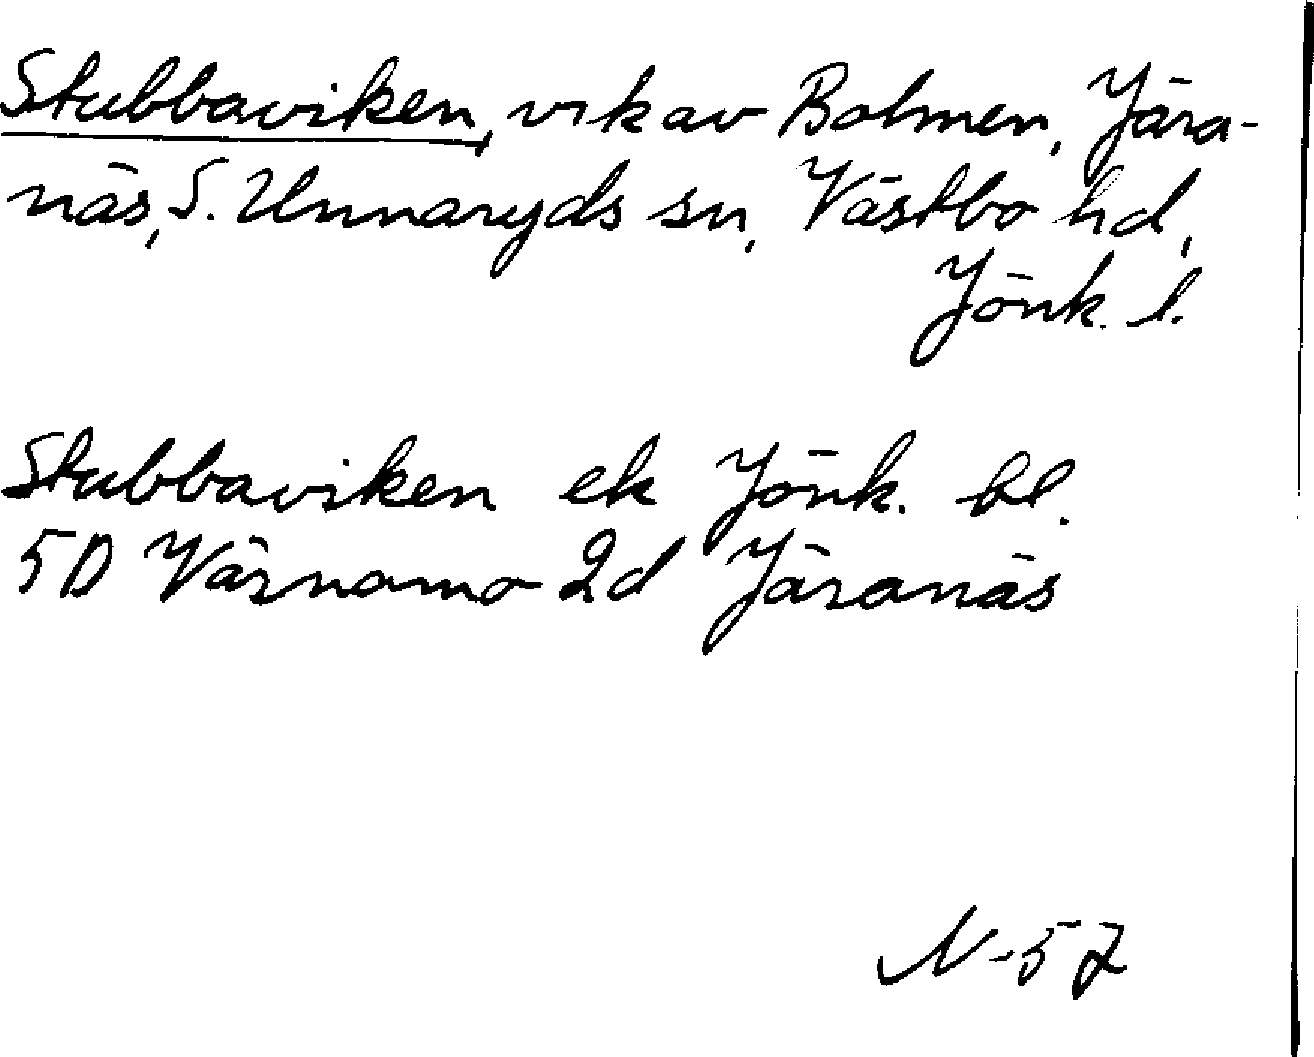 Stubbaviken, vik av Bolmen, Jära-
näs, S. Unnaryds sn, Västbo hd,
Jönk. l.
Stubbaviken ek Jönk. bl.
5D Värnamo 2d Järanäs
N-57